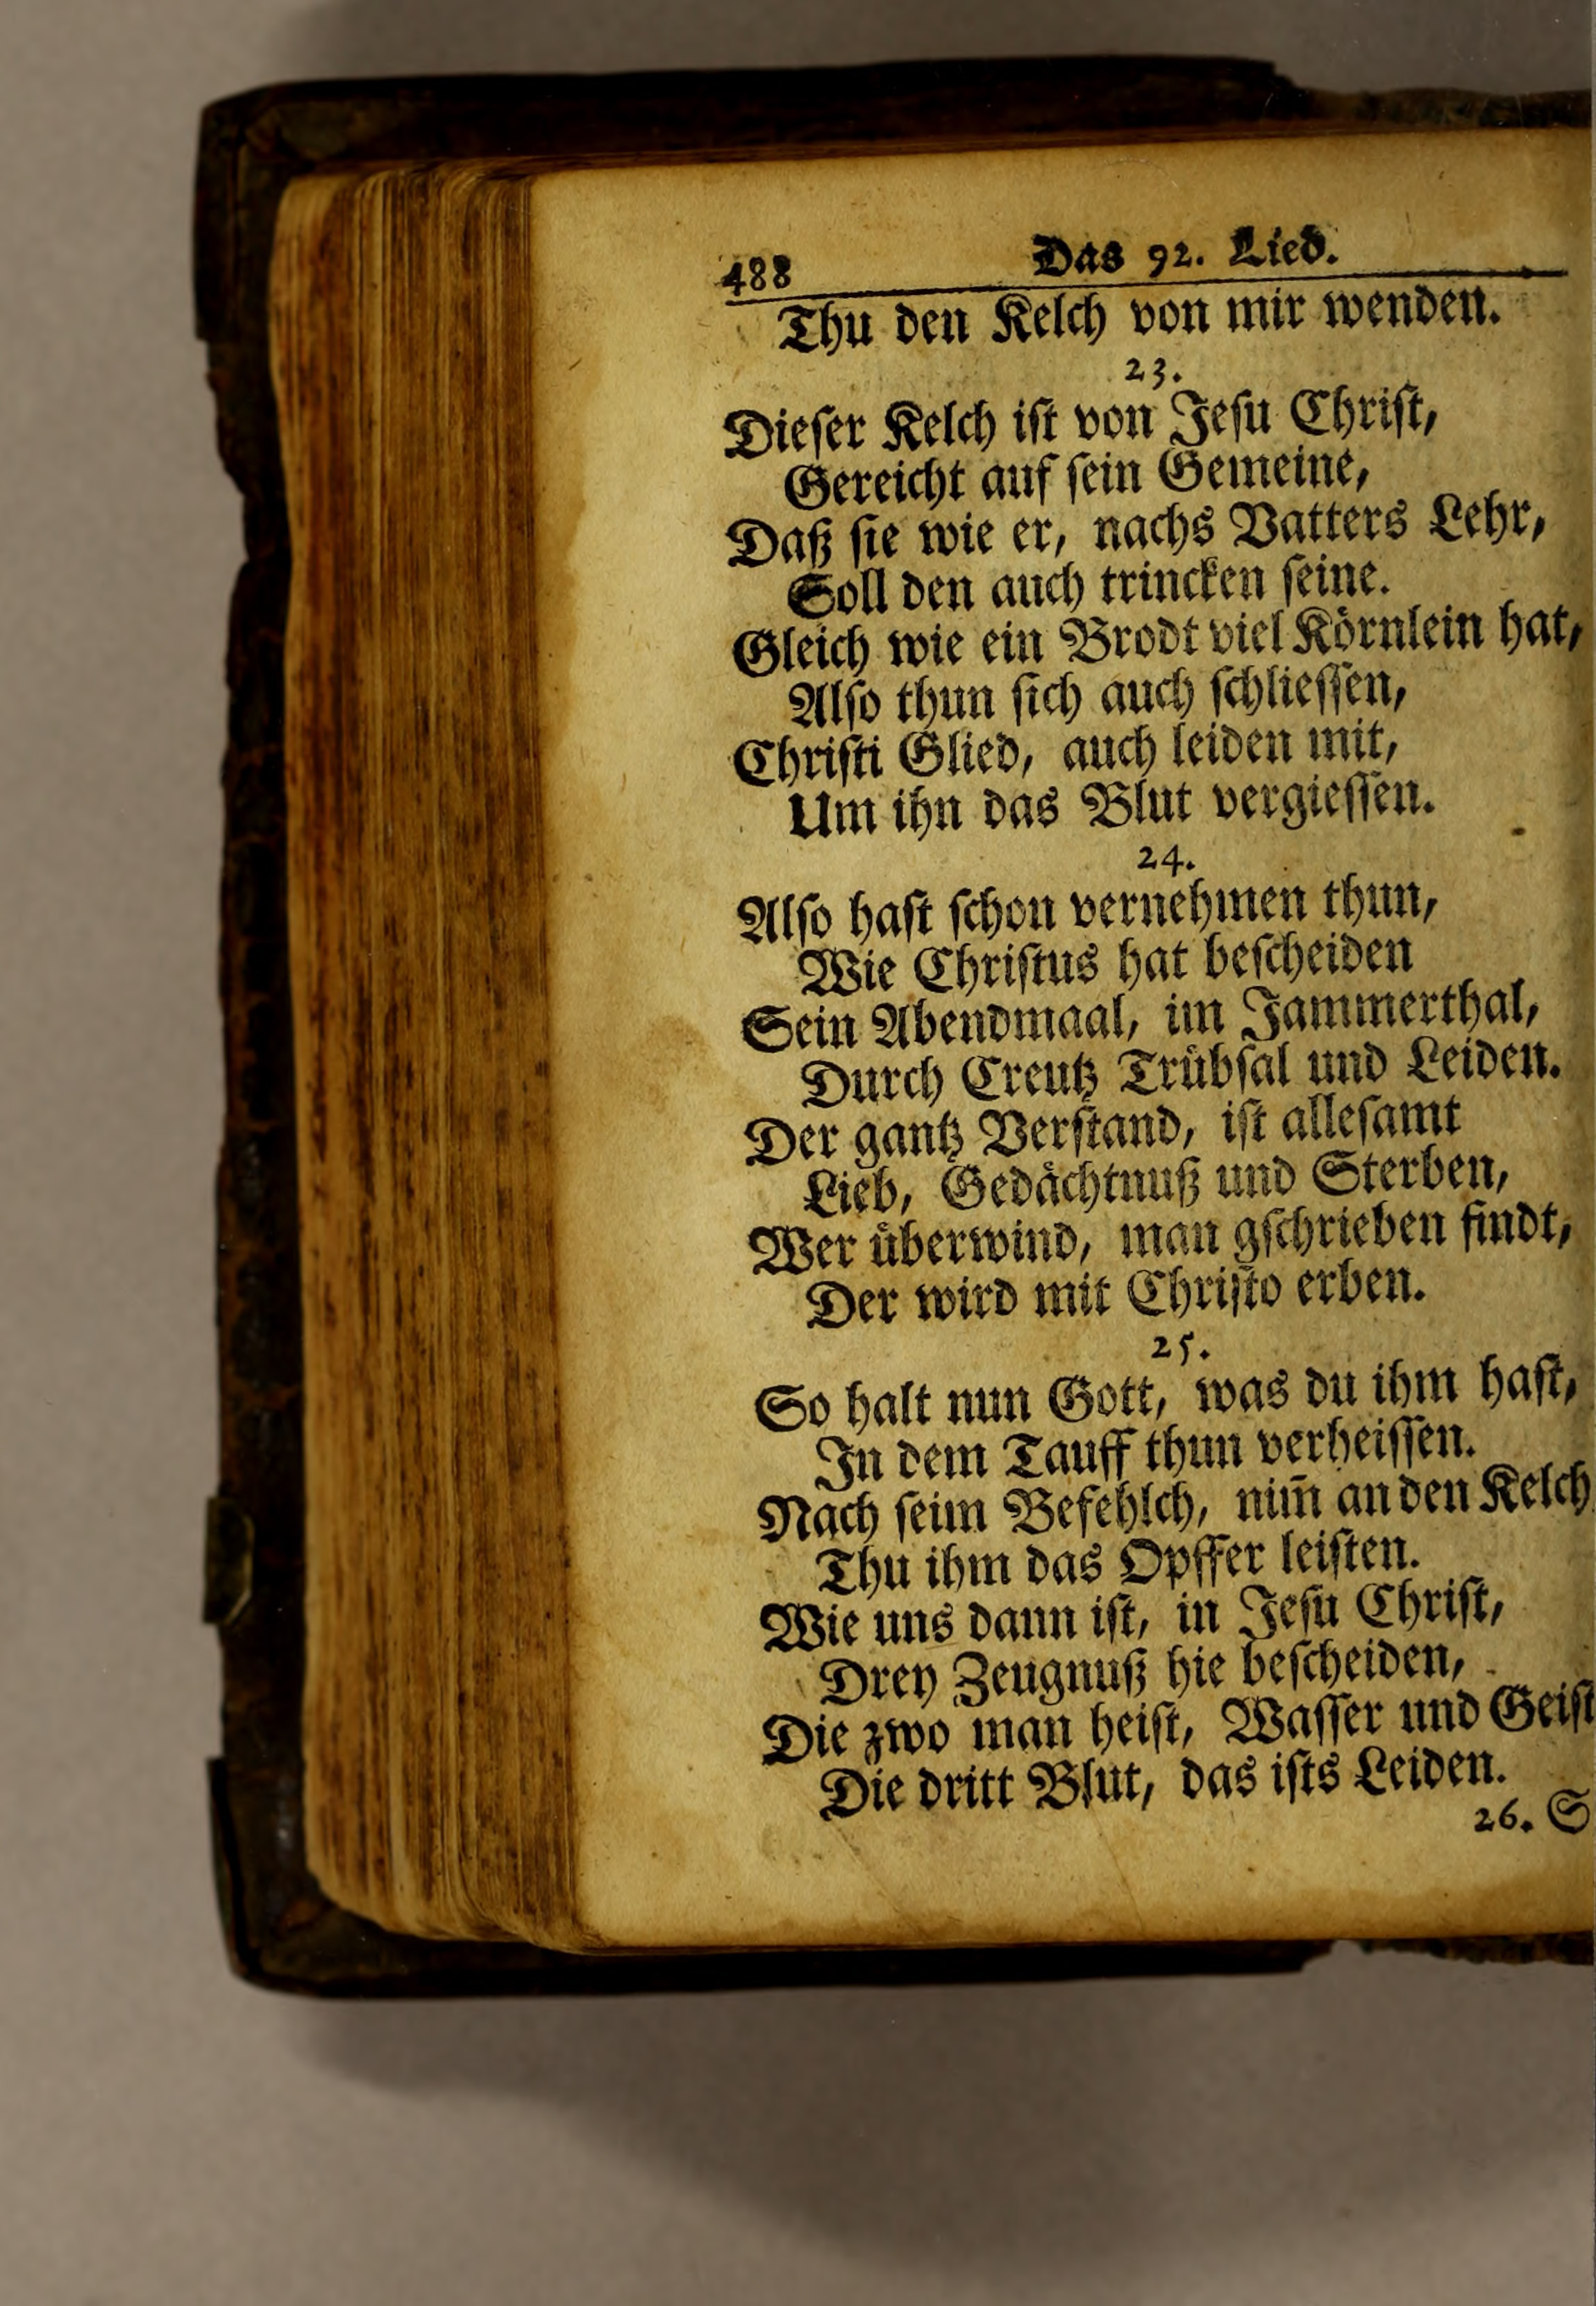 488 Das 92. Lied.
Thu den Kelch von mir wenden.
23.
Dieſer Kelch iſt von Jeſu Chriſt,
Gereicht auf ſein Gemeine,
Daß ſie wie er, nachs Vatters Lehr,
Soll den auch trincken ſeine.
Gleich wie ein Brodt viel Koͤrnlein hat,
Alſo thun ſich auch ſchlieſſen,
Chriſti Glied, auch leiden mit,
Um ihn das Blut vergieſſen.
24.
Alſo haſt ſchon vernehmen thun,
Wie Chriſtus hat beſcheiden
Sein Abendmaal, im Jammerthal,
Durch Creutz Truͤbſal und Leiden.
Der gantz Verſtand, iſt alleſamt
Lieb, Gedaͤchtnuß und Sterben,
Wer uͤberwind, man gſchrieben findt,
Der wird mit Chriſto erben.
25.
So halt nun Gott, was du ihm haſt,
In dem Tauff thun verheiſſen.
Nach ſeim Befehlch, nim̄ an den Kelch
Thu ihm das Opffer leiſten.
Wie uns dann iſt, in Jeſu Chriſt,
Drey Zeugnuß hie beſcheiden,
Die zwo man heiſt, Waſſer und Geiſt
Die dritt Blut, das iſts Leiden.
26. S